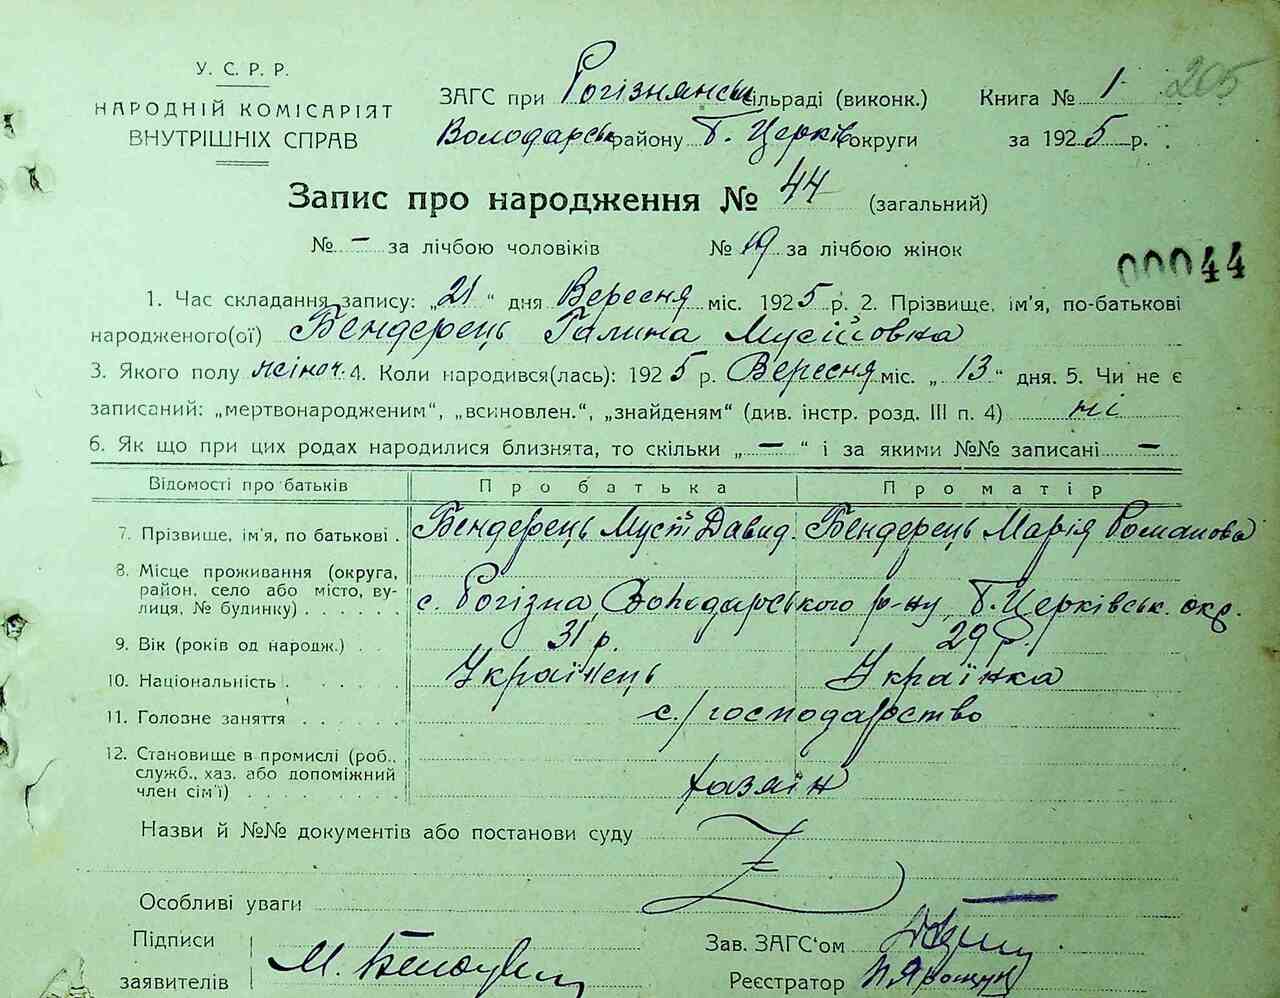 205
У. С. Р. Р.
НАРОДНІЙ КОМІСАРІЯТ
ВНУТРІШНІХ СПРАВ
ЗАГС при Рогізнянськ сільраді (виконк.) Книга № 1
Володарськ району Б. Церків округи за 1925 р.
Запис про народження № 44 (загальний)
№ – за лічбою чоловіків № 19 за лічбою жінок
00044
1. Час складання запису: „21“ дня Вересня міс. 1925 р. 2. Прізвище, ім'я, по-батькові
народженого(ої) Бендерець Галина Мусіїовна
3. Якого полу жіноч. 4. Коли народився(лась): 1925 р. Вересня міс. „13“ дня. 5. Чи не є
записаний: „мертвонародженим“, „всиновлен.“, „знайденям“ (див. інстр. розд. III п. 4) ні
6. Як що при цих родах народилися близнята, то скільки „–“ і за якими №№ записані –
Відомості про батьків Про батька Про матір
7. Прізвище, ім'я, по батькові . Бендерець Мусій Давид. Бендерець Марія Романова
8. Місце проживання (округа,
район, село або місто, ву-
лиця, № будинку) . . . . . . с. Рогізна, Володарського р-ну, Б. Церківськ. окр.
9. Вік (років од народж.) . . 31 р. 29 р.
10. Національність . . . . . Українець Українка
11. Головне заняття . . . . . . с/господарство
12. Становище в промислі (роб.,
служб., хаз. або допоміжний
член сім'ї) . . . . . . . . хазяїн
Назви й №№ документів або постанови суду
Особливі уваги
Підписи
заявителів
М.
Зав. ЗАГС'ом
Реєстратор П. Ярощук